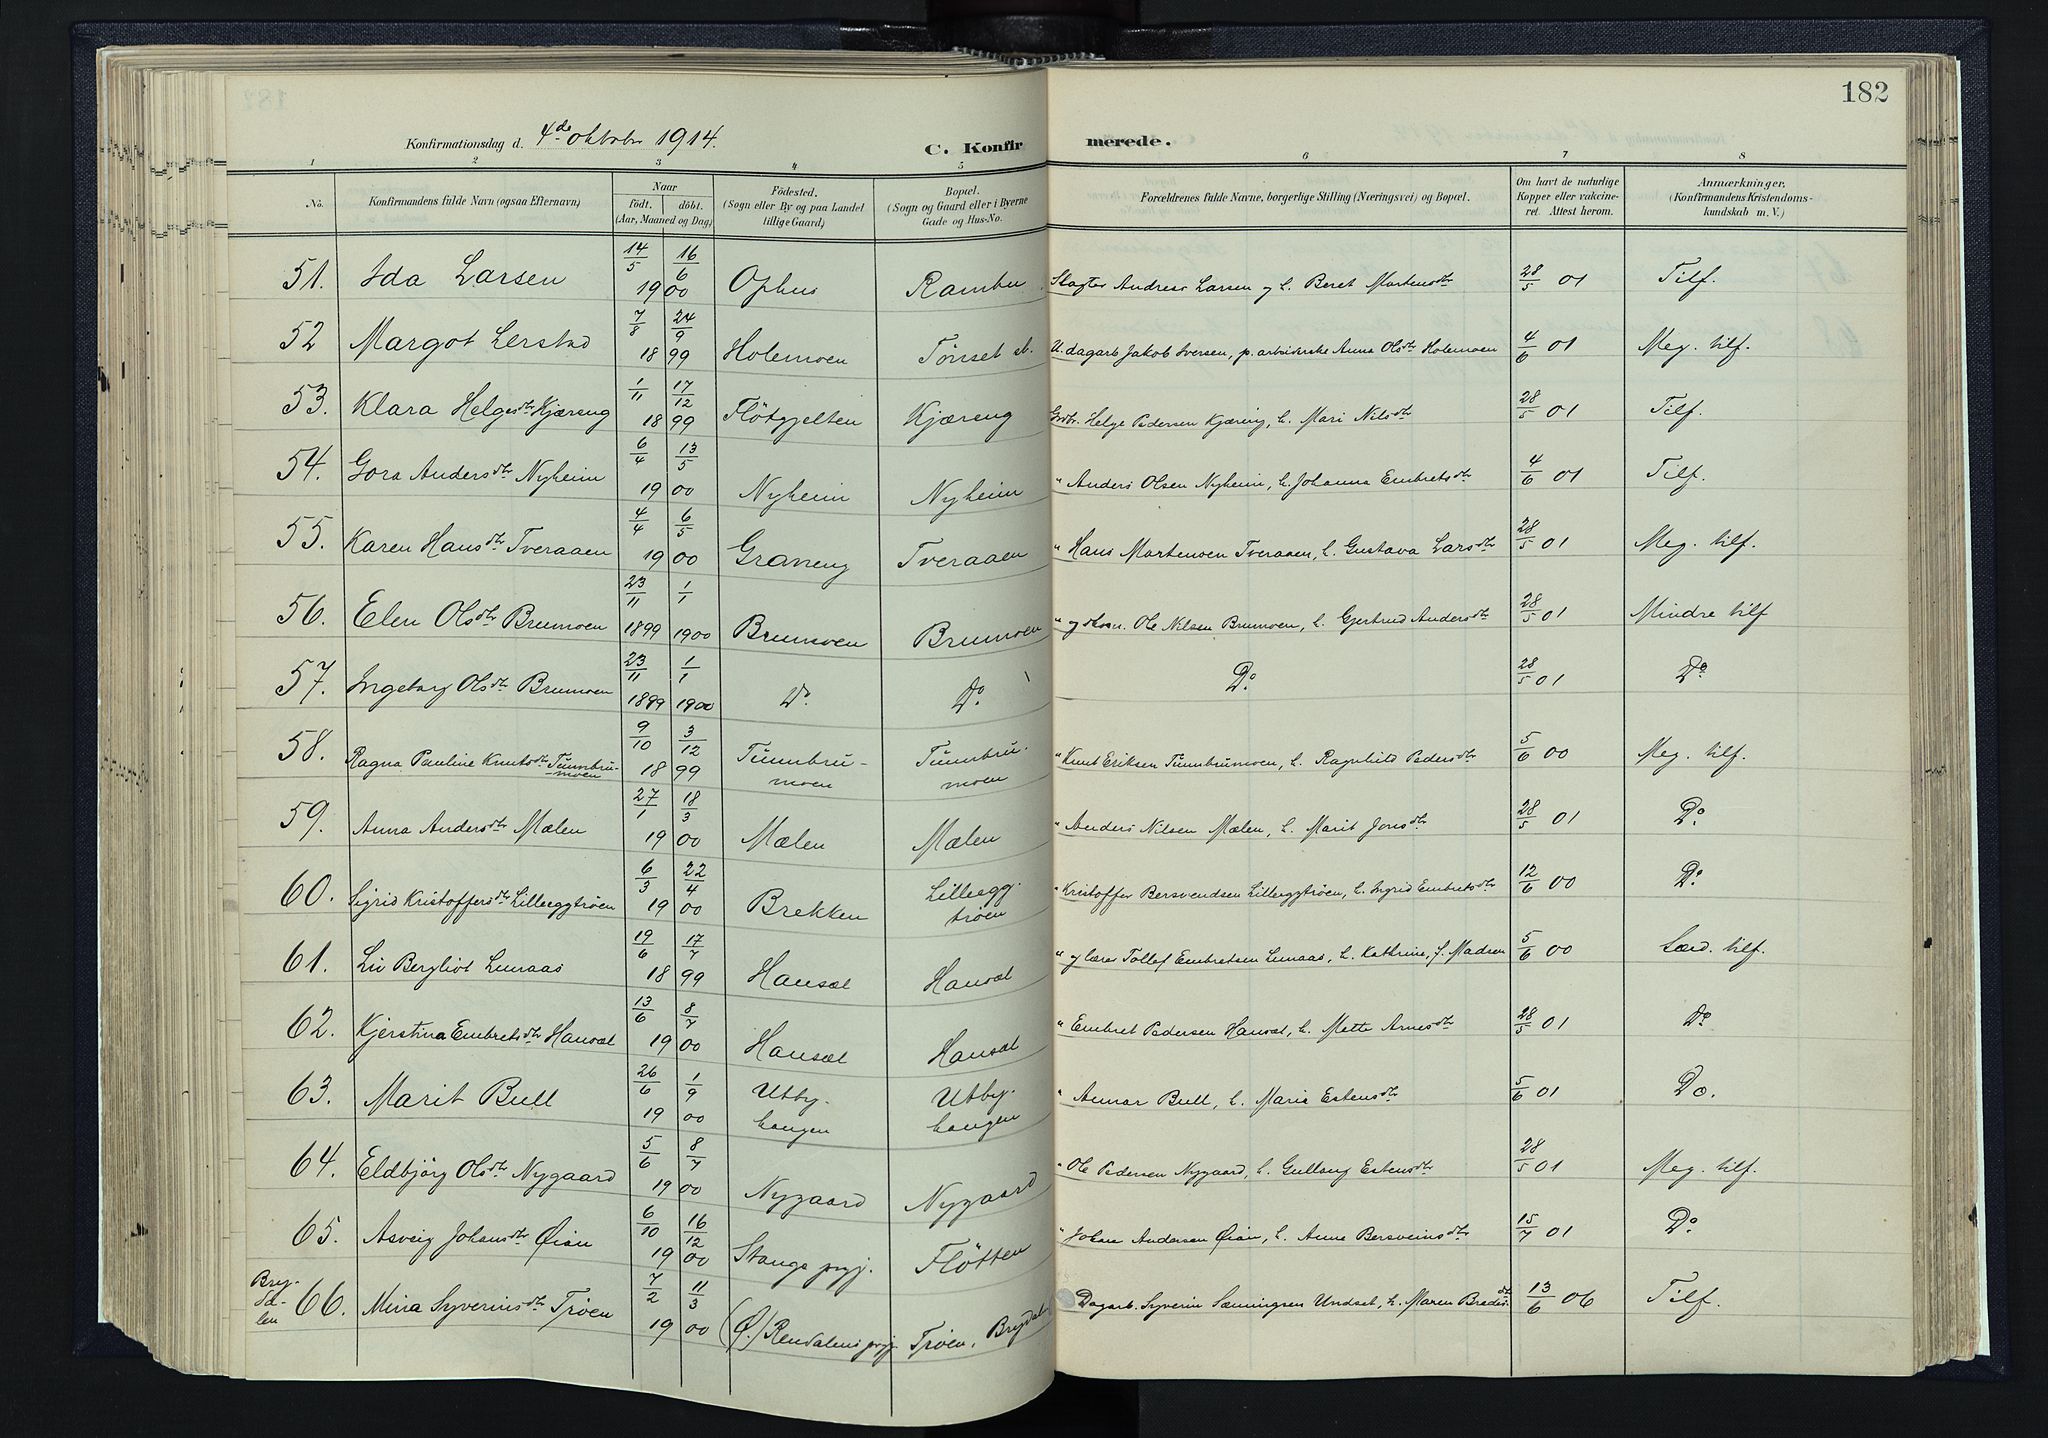 182
Konfirmationsdag d. 4de oktober 1914.
C. Konfirmerede.
1 2 3 4 5 6 7 8
No.
Konfirmandens fulde Navn (ogsaa Efternavn)
Naar
født. døbt.
(Aar, Maaned og Dag)
Fødested.
(Sogn eller By og paa Landet
tillige Gaard)
Bopæl.
(Sogn og Gaard eller i Byerne
Gade og Hus-No.
Forældrenes fulde Navne, borgerlige Stilling (Næringsvei) og Bopæl.
Om havt de naturlige
Kopper eller vakcine-
ret. Attest herom.
Anmærkninger.
(Konfirmandens Kristendoms-
kundskab m. V.)
51. Ida Larsen 14/5 16/6 1900 Ophus Rambu Slagter Andreas Larsen og h. Beret Martensdtr 28/5 01 Tilf.
52 Margot Lerstad 7/8 24/9 1899 Holemoen Tönset st. U. dagarb Jakob Iversen, p. arbeiderske Anna Olsdtr Holemoen 4/6 01 Meg. tilf.
53. Klara Helgesdtr Kjæreng 1/11 17/12 1899 Flötgjelten Kjæreng Grdbr. Helge Pedersen Kjæreng, h. Mari Nilsdtr 28/5 01 Tilf.
54. Gora Andersdtr Nyheim 6/4 13/5 1900 Nyheim Nyheim " Anders Olsen Nyheim, h. Johanna Embretsdtr 4/6 01 Tilf.
55. Karen Hansdtr Tveraaen 4/4 6/5 1900 Graneng Tveraaen " Hans Martensen Tveraaen, h. Gustava Larsdtr 28/5 01 Meg. tilf.
56. Elen Olsdtr Brumoen 23/11 1899 1/1 1900 Brumoen Brumoen " og Ole Nilsen Brumoen, h. Gjertrud Andersdtr 28/5 01 Mindre tilf
57. Ingeborg Olsdtr Brumoen 23/11 1899 1/1 1900 Do. Do. Do. 28/5 01 Do
58. Ragna Pauline Knutsdtr Tunnbru-
moen 9/10 3/12 1899 Tunnbru-
moen Tunnbru-
moen " Knut Eriksen Tunnbrumoen, h. Ragnhild Pedersdtr 5/6 00 Meg. tilf.
59. Anna Andersdtr Mælen 27/1 18/3 1900 Mælen Mælen " Anders Nilsen Mælen, h. Marit Jonsdtr 28/5 01 Do.
60. Sigrid Kristoffersdtr Lilleeggtröen 6/3 22/4 1900 Brekken Lilleegg-
tröen " Kristoffer Bersvendsen Lilleeggtröen, h. Ingrid Embretsdtr 12/6 00 Do.
61. Liv Bergliot Lunaas 19/6 17/7 1899 Hansæt Hansæt " og lærer Tollef Embretsen Lunaas, h. Kathrine, f. Madsen 5/6 00 Særd. tilf.
62. Kjerstina Embretsdtr Hansæt 13/6 8/7 1900 Hansæt Hansæt " Embret Pedersen Hansæt, h. Mette Arnesdtr 28/5 01 Do
63. Marit Bull 26/6 1/9 1900 Utby-
haugen Utby-
haugen " Annar Bull, h. Marie Estensdtr 5/6 01 Do.
64. Eldbjörg Olsdtr Nygaard 5/6 8/7 1900 Nygaard Nygaard " Ole Pedersen Nygaard, h. Gullaug Estensdtr 28/5 01 Meg. tilf.
65. Asveig Johansdtr Öian 6/10 16/12 1900 Stange prgj. Flötten " Johan Andersen Öian, h. Anne Bersveinsdtr 15/7 01 Do
Bry-
da-
len 66. Mina Syverinsdtr Tröen 7/2 11/3 1900 (Ö.) Rendalens prgj. Tröen, Brydalen Dagarb. Syverin Sæmingsen Undset, h. Maren Bredesdtr 13/6 06 Tilf.